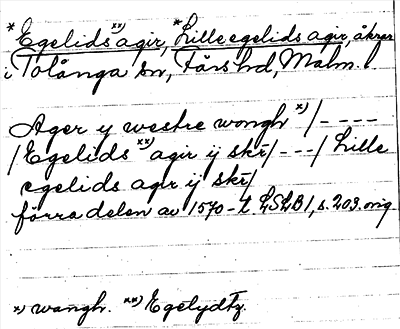 *Egelids xx) agir, *Lille egelids agir, åkrar
i Tolånga sn, Färs hd, Malm. l.
Ager ij westre wongh x) /- - - -
/Egelids xx) agir ij skr/ - - -/ Lille
egelids agr ij skr/
förra delen av 1570-t. LSLB 1, s. 203. orig.
x) wangh. xx) Egelydtz.